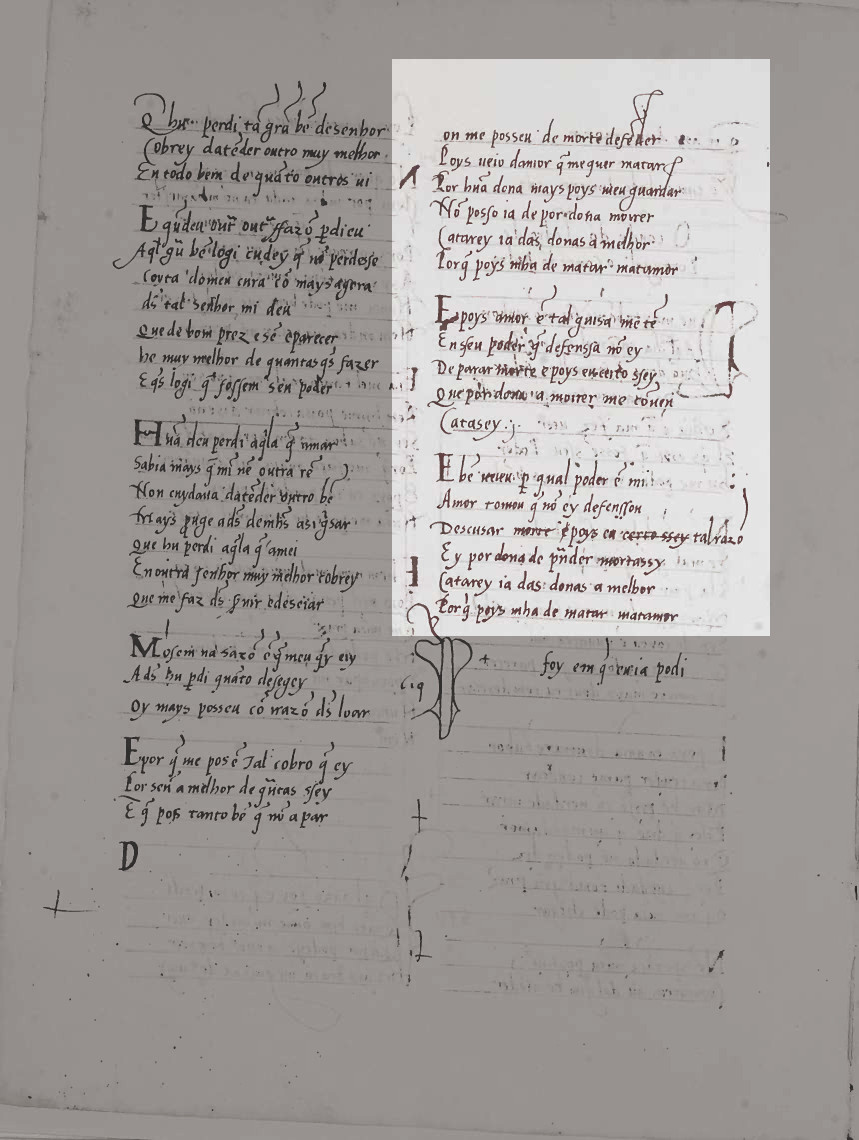 Q hu perdi tã grã bẽ desenhor
Cobrey datẽder outro muy melhor
En todo bem de quãto outros ui
E
Aql g̃u bẽ logi cudey q̃ nõ perdesse
Couta domeu cura cõ mays agora
ds̃ tal senhor mi deu
Que de bom prez e sẽ e parecer
he muy melhor de quantas q̃s fazer
E q̃s logi q̃ fossem seu poder
Hũa deu perdi aq̃la q̃ amar
Sabia mays q̃ mi nẽ outra rẽ
Non cuydaua datẽder outro bẽ
Mays
Que hu perdi aq̃la q̃ amei
En outra senhor muy melhor cobrey
Que me faz ds̃ seruir e deseiar
Mo sem
A ds̃ hu p̃di quãto desegey
Oy mays posseu cõ razõ ds̃ loar
E por q̃ me pos ẽ Tal cobro q̃ ey
Por señ a melhor de q̃ntas ssey
E q̃ pos tanto bẽ q̃ nõ a par
D
on me posseu de morte defẽder
Poys ueio damor q̃ me quer matar
Por hũa dona mays poys meu guardar
Nõ posso ia de por dona morrer
Catarey ia das donas a melhor
Porq̃ poys mha de matar matamor
E poys amor ẽ tal guisa me tẽ
En seu poder q̃ defenssa nõ ey
De parar morte e poys eu certo ssey
Que por dona a morrer me cõuen
Catarey .j.
E bẽ ueieu p̱ qual poder ẽ mi
Amor tomou q̃ nõ ey defenssou
Descusar morte e poys eu certo ssey tal razõ
Ey por dona de p̃nder mortassy
Catarey ia das donas a melhor
Porq̃ poys mha de matar matamor
foy em q̃ eria podi